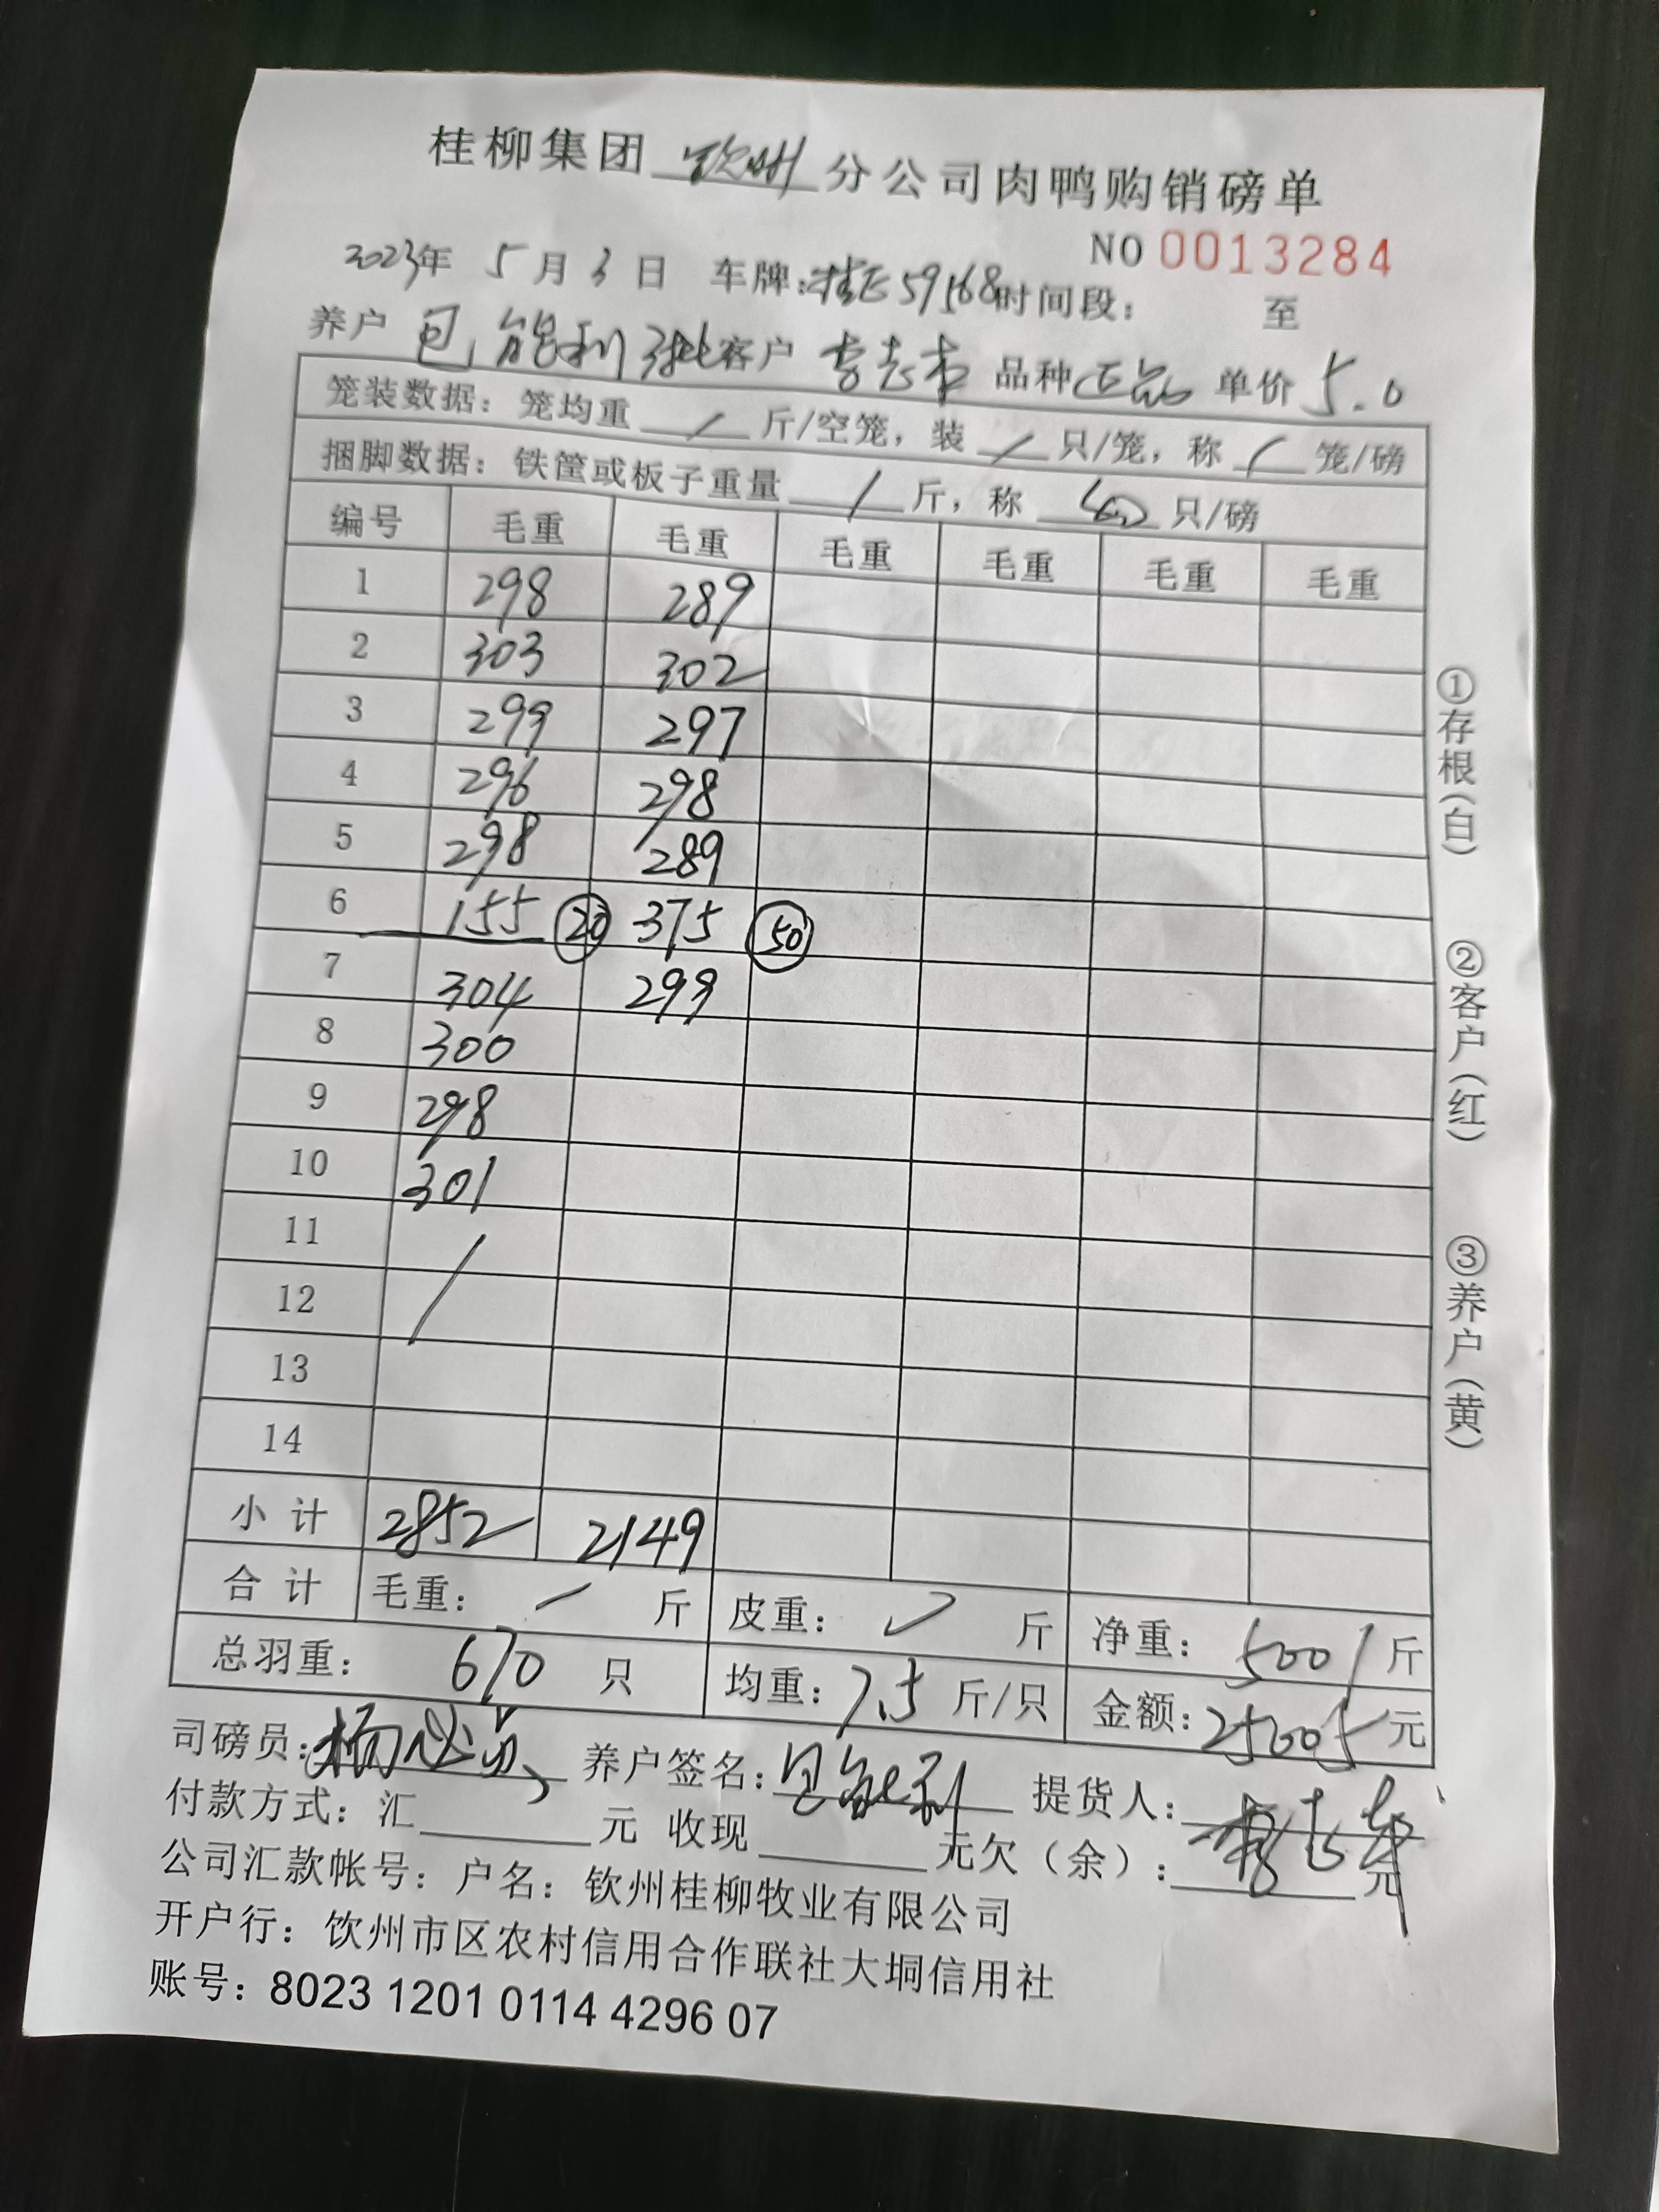 桂柳集团 钦州 分公司肉鸭购销磅单
NO 0013284
2023年 5月 3日 车牌:桂E59168 时间段: 至
养户 包能利 3批 客户 李志 品种 正品 单价 5.0
笼装数据: 笼均重 / 斤/空笼, 装 / 只/笼, 称 / 笼/磅
捆脚数据: 铁筐或板子重量 / 斤, 称 40 只/磅
编号 毛重 毛重 毛重 毛重 毛重 毛重
1 298 289
2 303 302
3 299 297
4 296 298
5 298 289
6 155 20 375 50
7 304 299
8 300
9 298
10 301
11 /
12
13
14
小计 2852 2149
合计 毛重: / 斤 皮重: / 斤 净重: 5001 斤
总羽重: 670 只 均重: 7.5 斤/只 金额: 25005 元
司磅员: 杨 养户签名: 包能利 提货人: 李志
付款方式: 汇 元 收现 元欠(余): 元
公司汇款帐号: 户名: 钦州桂柳牧业有限公司
开户行: 钦州市区农村信用合作联社大垌信用社
账号: 8023 1201 0114 4296 07
①存根(白)
②客户(红)
③养户(黄)